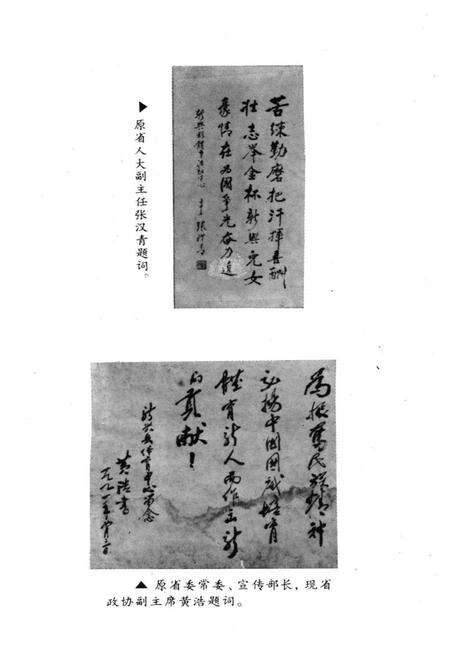 苦练勤磨把汗挥喜酬
壮志举金杯新兴儿女
豪情在为国争光奋力追
张汉青
▶原省人大副主任张汉青题词。
为振奋民族精神
弘扬中国国威培育
体育新人而作出新
的贡献！
黄浩书
▲原省委常委、宣传部长，现省
政协副主席黄浩题词。